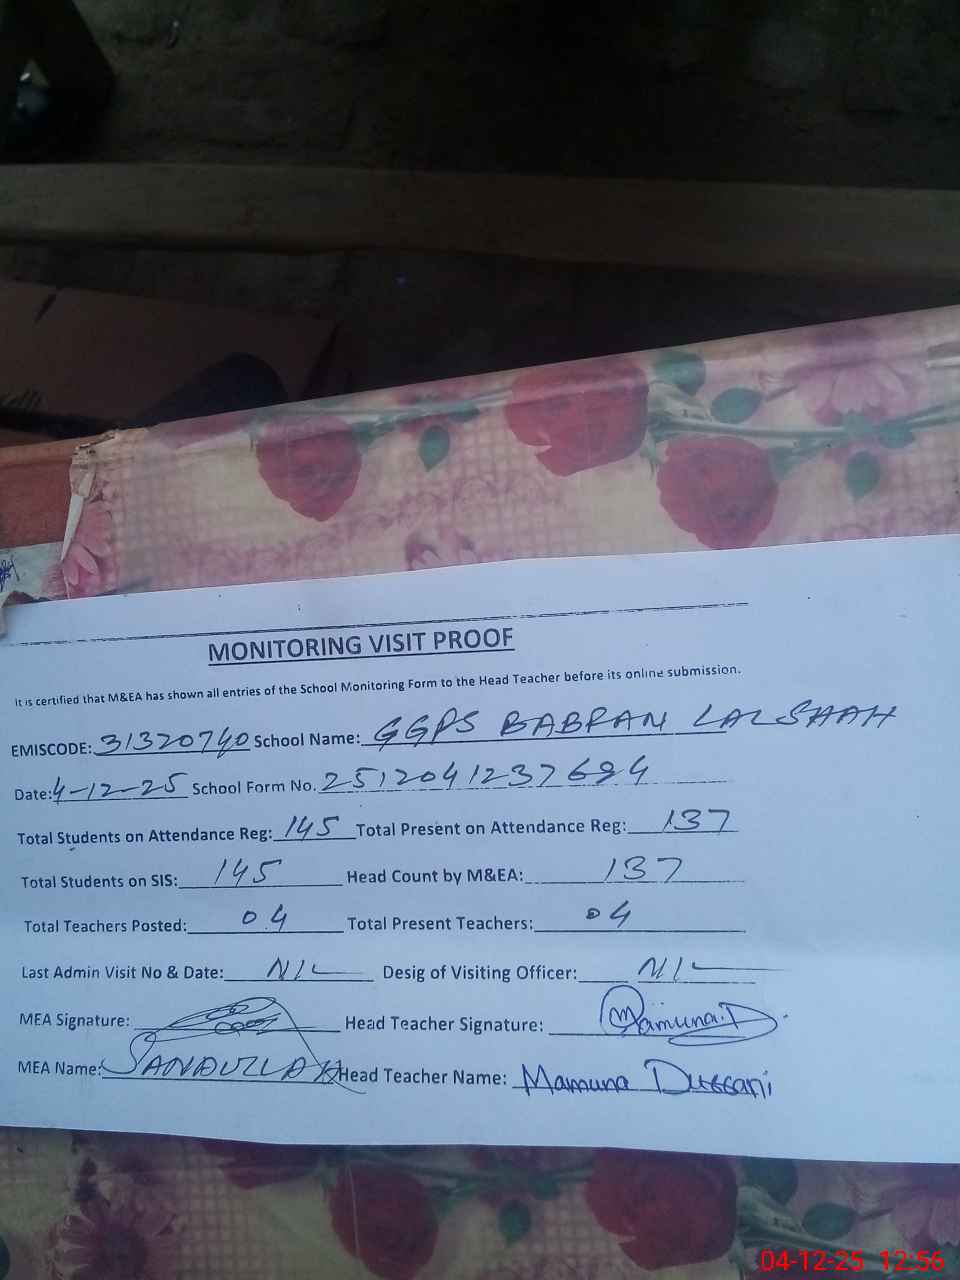 MONITORING VISIT PROOF
It is certified that M&EA has shown all entries of the School Monitoring Form to the Head Teacher before its online submission.
EMISCODE: 31320740 School Name: GGPS BABRAN LALSHAH
Date: 4-12-25 School Form No. 2512041237684
Total Students on Attendance Reg: 145 Total Present on Attendance Reg: 137
Total Students on SIS: 145 Head Count by M&EA: 137
Total Teachers Posted: 04 Total Present Teachers: 04
Last Admin Visit No & Date: NIL Desig of Visiting Officer: NIL
MEA Signature: Head Teacher Signature: Mamuna.D
MEA Name: SANAULLAH Head Teacher Name: Mamuna Dussani
04-12-25 12:56